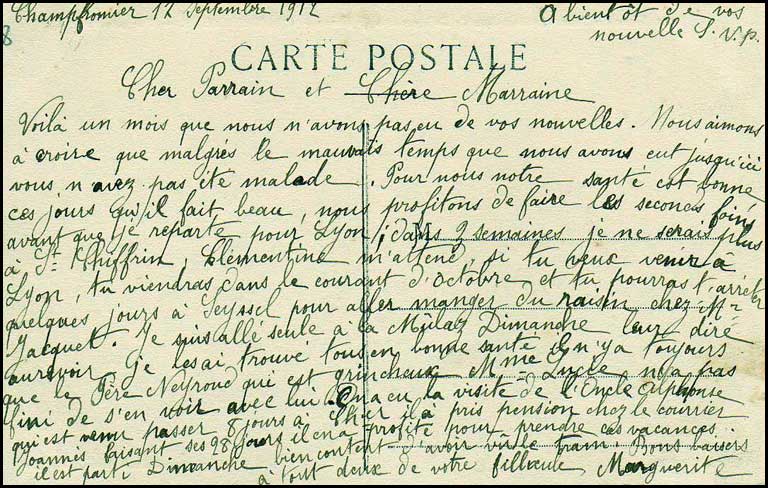 Champfromier 12 septembre 1912
A bientôt de vos
nouvelle S. V. P.
8
CARTE POSTALE
Cher Parrain et Chère Marraine
Voilà un mois que nous n'avons pas eu de vos nouvelles. Nous aimons
à croire que malgrès le mauvais temps que nous avons eut jusqu'ici
vous n'avez pas été malade. Pour nous notre santé est bonne
ces jours qu'il fait beau, nous profitons de faire les seconds foins
avant que je reparte pour Lyon, dans 2 semaines je ne serais plus
M
à St Chiffrin, Clémentine m'attend, si tu veux venir à
Lyon, tu viendras dans le courant d'octobre et tu pourras t'arrêter
quelques jours à Seyssel pour aller manger du raisin chez Mr
Jacquet. Je suis allé seule à la Mulaz Dimanche leur dire
aurevoir, je les ai trouvé tous en bonne santé il n'y a toujours
que le Père Neyroud qui est grincheux Mme Lucle n'a pas
fini de s'en voir avec lui. On a eu la visite de l'Oncle Alphonse
qui est venu passer 8 jours à Cher il à pris pension chez le courrier
Joannès faisant ses 28 jours il en a profité pour prendre ces vacances.
il est parti Dimanche bien content d'avoir vu le tram Bons baisers
à tout deux de votre filleule Marguerite